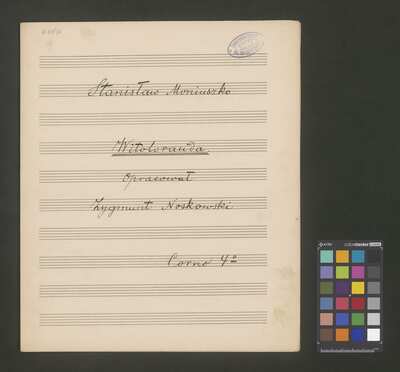 Stanisław Moniuszko
Witolorauda
opracował
Zygmunt Noskowski
Corno 4º